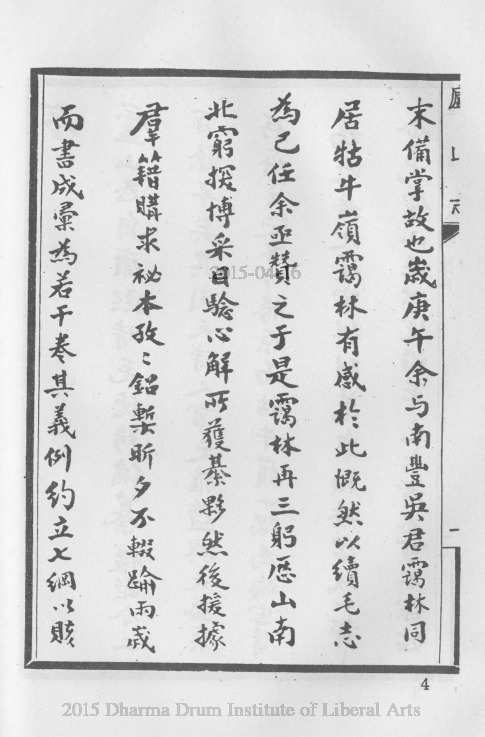 末備掌故也歲庚午余与南豐吳君靄林同
居牯牛嶺靄林有感於此慨然以續毛志
為己任余亟贊之于是靄林再三躬歷山南
北窮搜博采目驗心解所獲綦夥然後援據
羣籍購求祕本孜〻鉛槧昕夕不輟踰兩歲
而書成彙為若干卷其義例約立七綱以賅
廬山志
一
4
2015-04-16
2015 Dharma Drum Institute of Liberal Arts